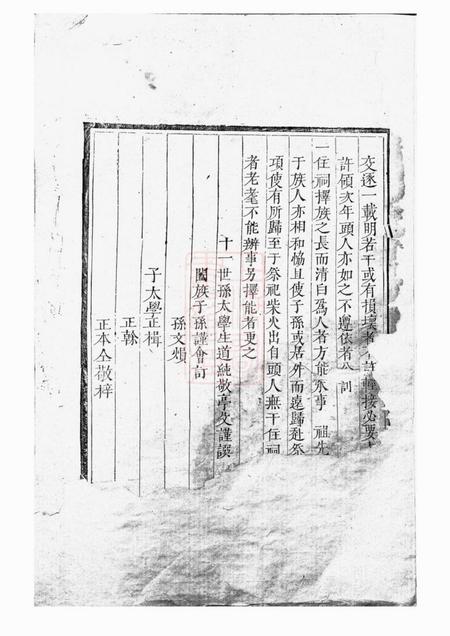 交逐一載明若干或有損壞者不許輕接必要
許領次年頭人亦如之不遵依者公訓
一住祠擇族之長而清白爲人者方能承事 祖先
于族人亦相和恊且使子孫或居外而遠歸赴祭
項使有所歸至于祭祀柴火出自頭人無干住祠
者老耄不能辦事另擇能者更之
十一世孫太學生道純敬亭文謹譔
闔族子孫謹會訂
孫文熲
子太學正楫
正榦
正本仝敬梓